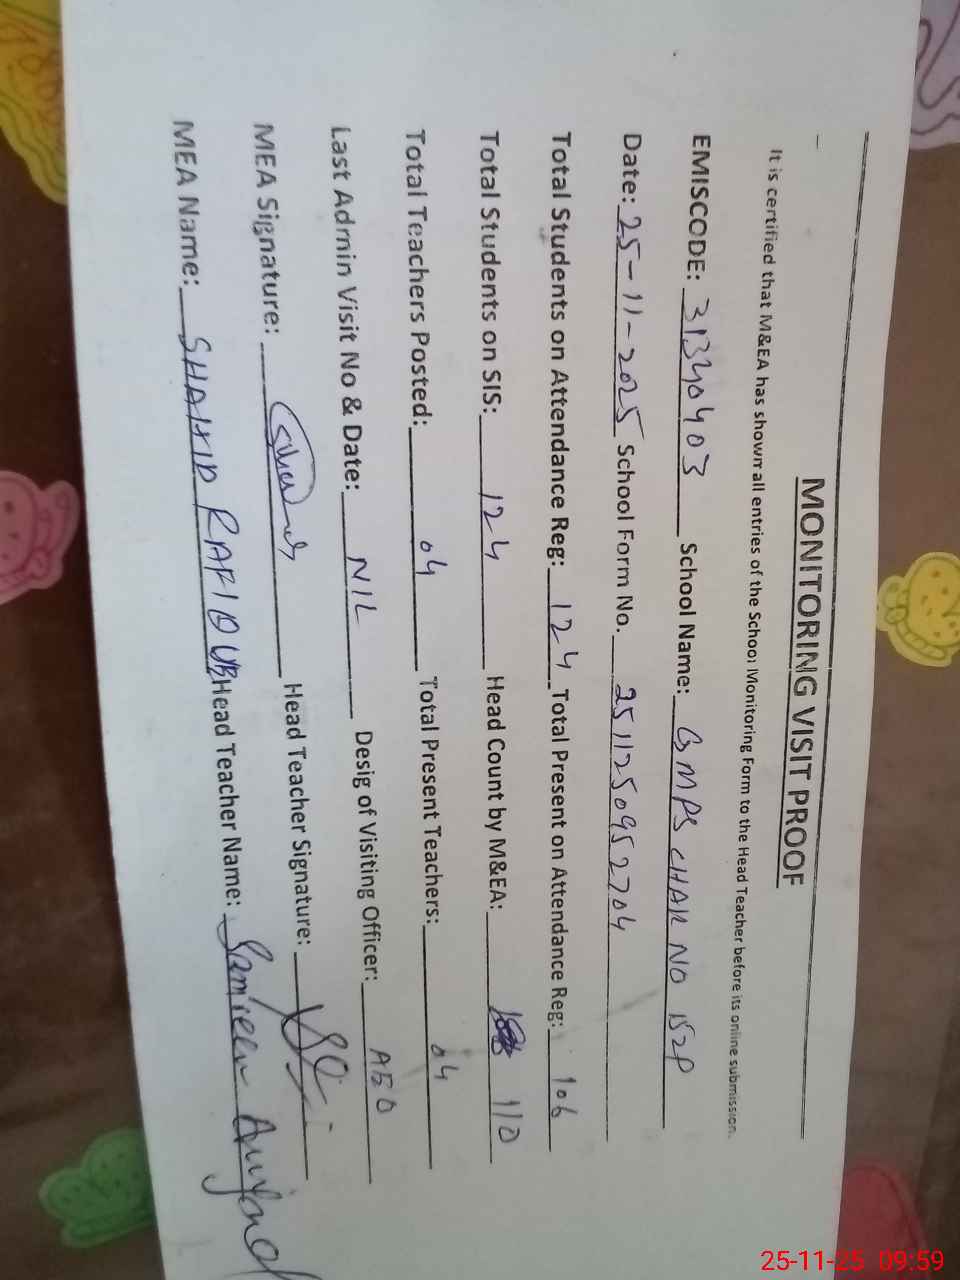 MONITORING VISIT PROOF
It is certified that M&EA has shown all entries of the School Monitoring Form to the Head Teacher before its online submission.
EMISCODE: 31340403 School Name: GMPS CHAK NO 152P
Date: 25-11-2025 School Form No. 2511250952704
Total Students on Attendance Reg: 124 Total Present on Attendance Reg: 106
Total Students on SIS: 124 Head Count by M&EA: 110
Total Teachers Posted: 04 Total Present Teachers: 04
Last Admin Visit No & Date: NIL Desig of Visiting Officer: AEO
MEA Signature: Head Teacher Signature:
MEA Name: SHAHID RAFIQUE Head Teacher Name: Samreen
25-11-25 09:59